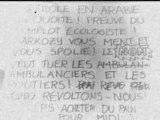 PÉTROLE EN ARABIE
SAOUDITE ! PREUVE DU
COMPLOT ÉCOLOGISTE !
SARKOZY VOUS MENT ET
VOUS SPOLIE ! LE
VEUT TUER LES
AMBULANCIERS ET LES
ROUTIERS !
RÉVOLTONS-NOUS !
PS ACHETER DU PAIN
POUR MIDI